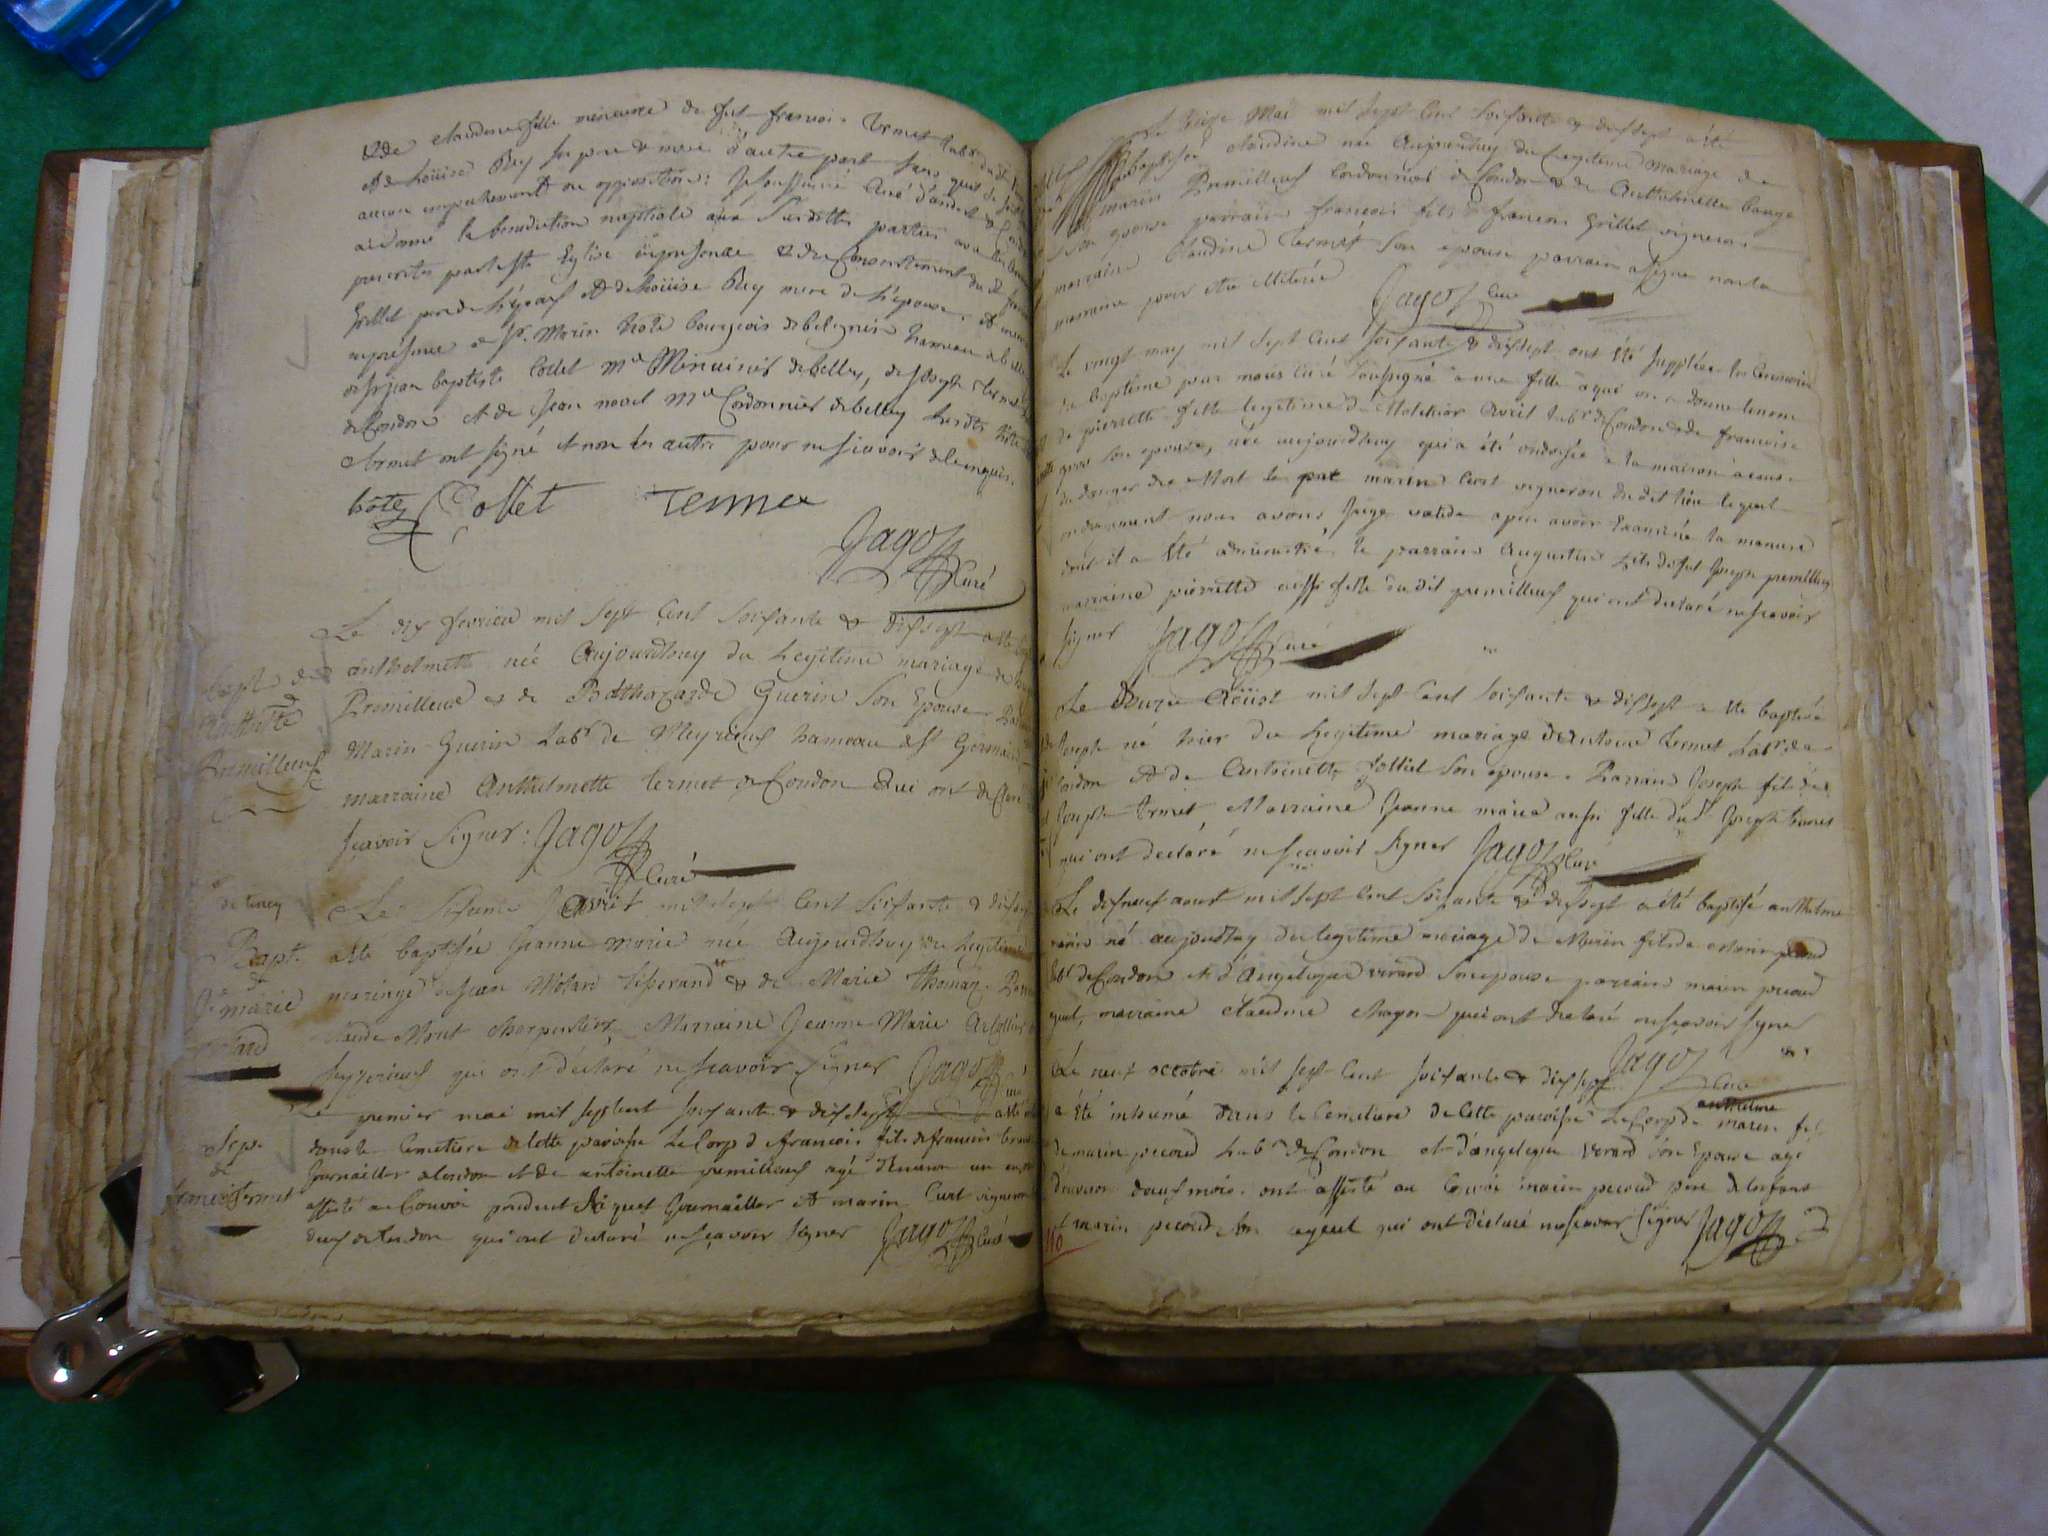 & de claudine fille mineure de feu francois Termet Labr du dt
et de Loüise Rey ses pere & mere d'autre part sans qu'il se soit
aucun empechement ou opposition: Je soussigné Curé d'andert &
ai donné la benediction nuptiale aux susdittes parties avec les
prescrites par la Ste Eglise en presence & du Consentement du dt
Grillet pere de l'époux et de Loüise Rey mere de l'epouse, et
en presence de Sr. Marin hote bourgeois de belignin hameau
de Sr jean baptiste Collet Me Menuisier de belley, de joseph Termet
de Condon et de jean novel Me Cordonnier de belley
Termet ont signé et non les autres pour ne sçavoir de ce enquis.
hôte Collet Termet
Jagot Curé
Le dix fevrier mil sept Cent soixante & dixsept a été
anthelmette née Aujourdhuy du Legitime mariage de
Premilleux & de Balthazarde Guerin son Epouse
Marin Guerin Labr de Meyrieux hameau de St Germain
marraine Anthelmette Termet de Condon Qui ont declaré
sçavoir signer: Jagot
Curé
Bapt de
Premilleux
Le sixieme Avril mil sept Cent soixante & dixsept
a été baptisée Jeanne marie née Aujourdhuy du Legitime
mariage de Jean Molard tisserand & de Marie
Claude Mont charpentier Marraine Jeanne Marie
qui ont déclaré ne sçavoir signer Jagot
Curé
Bapt.
de
Je marie
molard
Le premier mai mil sept cent soixante & dixsept a été
dans le Cemetiere de cette paroisse Le Corps de francois fils de francois termet
journailler a Condon et de antoinette premilleux agé d'environ un an
assisté au Convoi journailler et marin Curt vigneron
deux de Condon qui ont declaré ne sçavoir signer Jagot Curé
Sep.
de
francois Termet
Le treize Mai mil sept Cent soixante & dixsept a été
baptisée Claudine née Aujourdhuy du Legitime Mariage de
marin Premilleux Cordonnier de Condon & de Anthelmette
son epouse parrain francois fils de francois Grillet vigneron
marraine Claudine Termet son epouse parrain a signé non la
marraine pour etre illiterée
Jagot Curé
Le vingt may mil sept Cent soixante & dixsept ont été suppléées les Ceremonies
du baptême par nous curé soussigné a une fille a qui on a donné le nom
de pierrette fille legitime de Melchior Avril Labr de Condon & de francoise
son epouse, née aujourdhuy qui a été ondoyée a la maison a cause
du danger de Mort par marin Curt vigneron du dit lieu lequel
ondoyement nous avons jugé valide apres avoir Examiné la maniere
dont il a été administré. le parrain Augustin fils de feu Joseph premilleux
marraine pierrette aussi fille du dit premilleux qui ont declaré ne sçavoir
signer Jagot Curé
Le Douze Aoüst mil sept Cent soixante & dixsept a été baptisé
Joseph né hier du Legitime mariage d'antoine Termet Labr de
Condon et de Antoinette Jolliet son epouse. Parrain Joseph fils de
Joseph Termet, Marraine Jeanne marie aussi fille du dt Joseph Termet
qui ont declaré ne sçavoir signer Jagot Curé
Le dixneuf aoust mil sept Cent soixante & dixsept a été baptisé anthelme
marin né aujourdhuy du legitime mariage de Marin fils de marin pecoud
Labr de Condon et d'Angelique verard son epouse parrain marin pecoud
ayeul, marraine claudine qui ont declaré ne sçavoir signer
Jagot Curé
Le neuf octobre mil sept Cent soixante & dixsept
anthelme
a été inhumé dans le Cemetiere de Cette paroisse Le Corps de marin fils
de marin pecoud Labr de Condon et d'angelique verard son Epouse agé
d'environ deux mois. ont assisté au Convoi marin pecoud pere de l'enfant
& marin pecoud son ayeul qui ont déclaré ne sçavoir signer Jagot
110